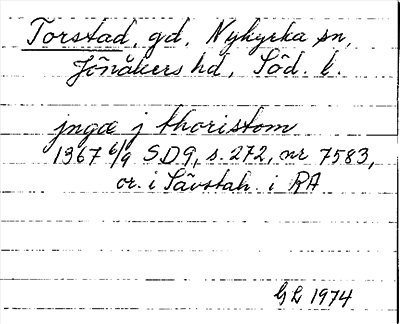 Torstad, gd, Nykyrka sn,
Jönåkers hd, Söd. l.
jnga j thoristom
1367 6/9 SD9, s. 272, nr 7583,
or. i Sävstah. i RA
GL 1974